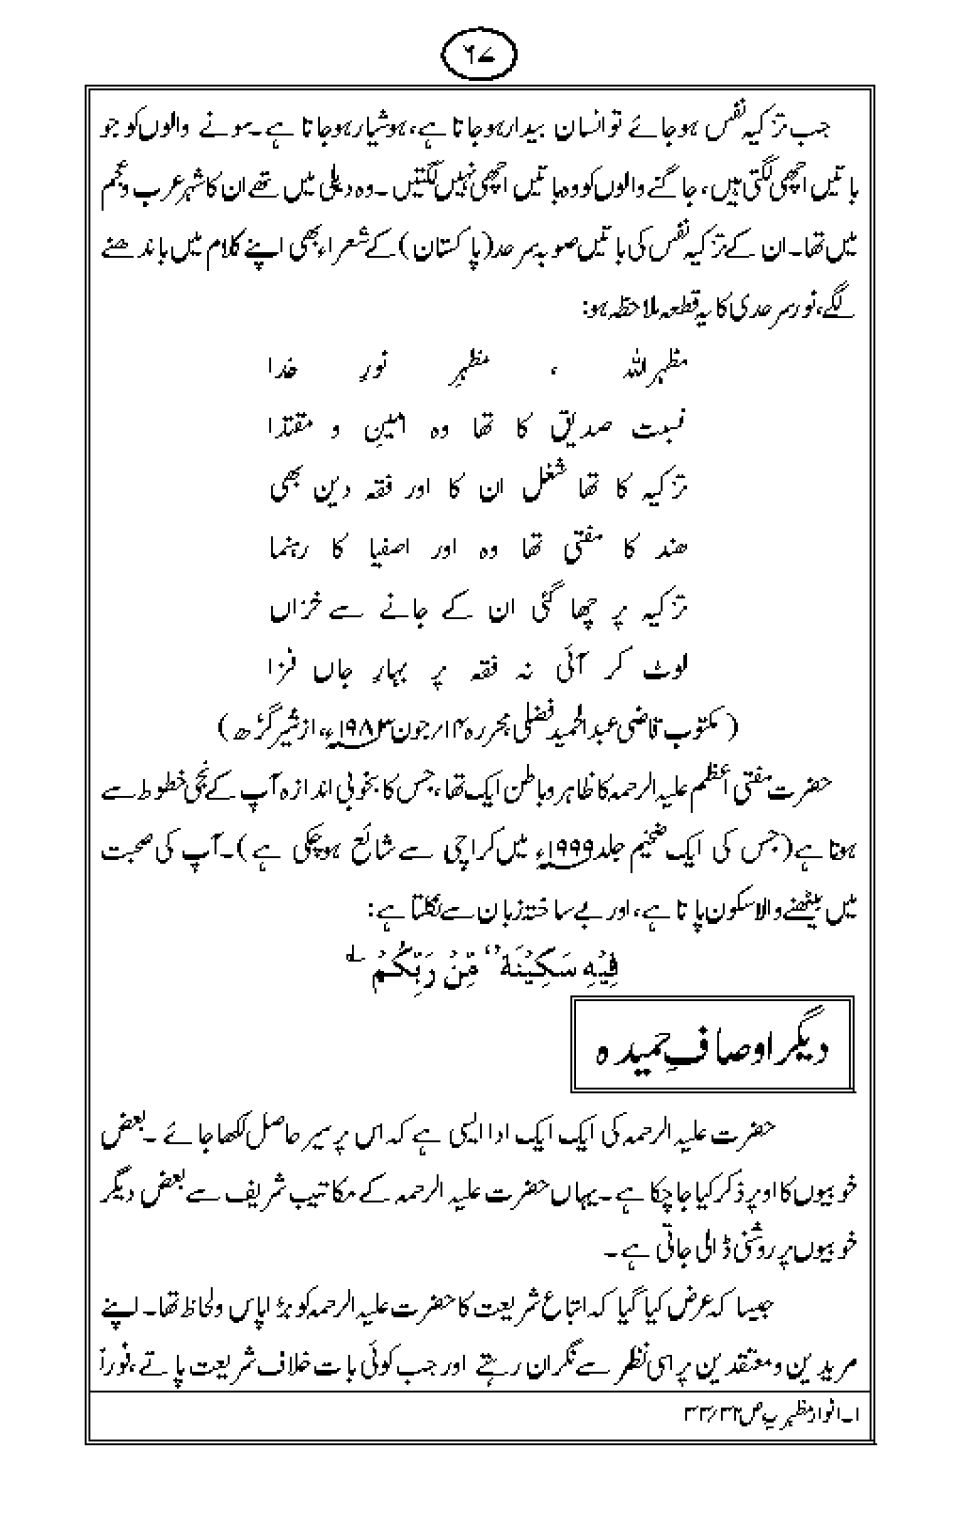 ۶۷
جب تزکیہ نفس ہوجائے تو انسان بیدار ہوجاتا ہے، ہوشیار ہوجاتا ہے۔ سونے والوں کو جو
باتیں اچھی لگتی ہیں، جاگنے والوں کو وہ باتیں اچھی نہیں لگتیں۔ وہ دہلی میں تھے ان کا شہر عرب و عجم
میں تھا۔ ان کے تزکیہ نفس کی باتیں صوبہ سرحد (پاکستان) کے شعراء بھی اپنے کلام میں باندھنے
لگے، نور سرحدی کا یہ قطعہ ملاحظہ ہو:
مظہر اللہ ، مظہرِ نورِ خدا
نسبت صدیق کا تھا وہ امینِ و مقتدا
تزکیہ کا تھا شغل ان کا اور فقہ دین بھی
ھند کا مفتی تھا وہ اور اصفیا کا رہنما
تزکیہ پر چھا گئی ان کے جانے سے خزاں
لوٹ کر آئی نہ فقہ پر بہارِ جاں فزا
(مکتوب قاضی عبدالحمید فضلی محررہ ۱۴/جون ۱۹۸۳ء، از شیر گڑھ)
حضرت مفتی اعظم علیہ الرحمہ کا ظاہر و باطن ایک تھا، جس کا بخوبی اندازہ آپ کے نجی خطوط سے
ہوتا ہے (جس کی ایک ضخیم جلد ۱۹۹۹ء میں کراچی سے شائع ہوچکی ہے)۔ آپ کی صحبت
میں بیٹھنے والا سکون پاتا ہے، اور بے ساختہ زبان سے نکلتا ہے:
فِیْهِ سَكِیْنَةٌ مِّنْ رَبِّكُمْ ۱
دیگر اوصافِ حمیدہ
حضرت علیہ الرحمہ کی ایک ایک ادا ایسی ہے کہ اس پر سیر حاصل لکھا جائے۔ بعض
خوبیوں کا اوپر ذکر کیا جاچکا ہے۔ یہاں حضرت علیہ الرحمہ کے مکاتیب شریف سے بعض دیگر
خوبیوں پر روشنی ڈالی جاتی ہے۔
جیسا کہ عرض کیا گیا کہ اتباع شریعت کا حضرت علیہ الرحمہ کو بڑا پاس و لحاظ تھا۔ اپنے
مریدین و معتقدین پر اسی نظر سے نگران رہتے اور جب کوئی بات خلاف شریعت پاتے، فوراً
۱۔ انوار مظہریہ ص ۳۲/۳۳